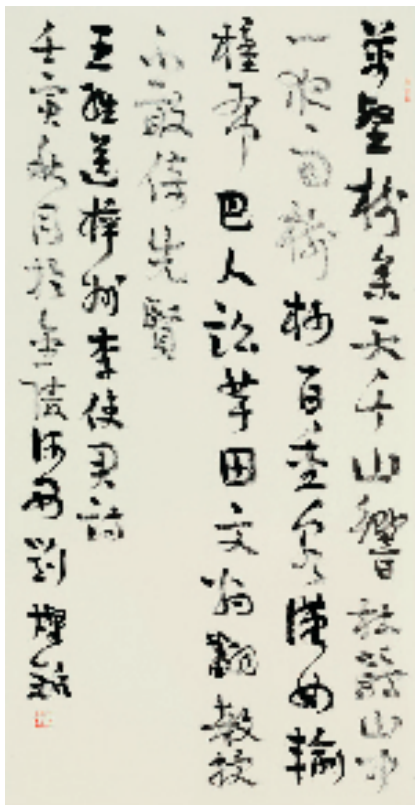 萬壑樹參天千山響杜鵑山中
一夜雨樹杪百重泉漢女輸
橦布巴人訟芋田文翁翻教授
不敢倚先賢
王維送梓州李使君詩
壬寅秋月於金陵河西劉燦銘